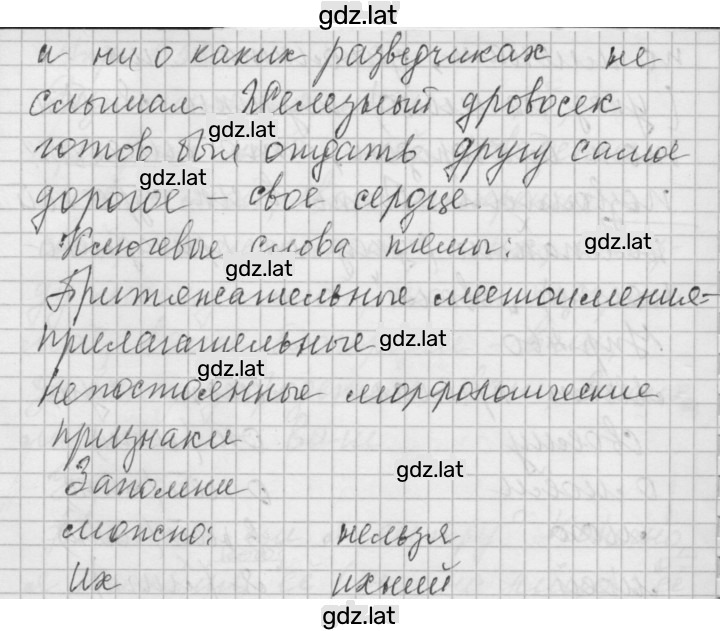 gdz.lat
и ни о каких разведчиках не
слышал Железный дровосек
gdz.lat
готов был отдать другу самое
gdz.lat
дорогое – свое сердце.
Ключевые слова темы:
gdz.lat
gdz.lat
Притяжательные местоимения-
прилагательные
gdz.lat
gdz.lat
Непостоянные морфологические
признаки
gdz.lat
Запомни
можно: нельзя
Их ихний
gdz.lat